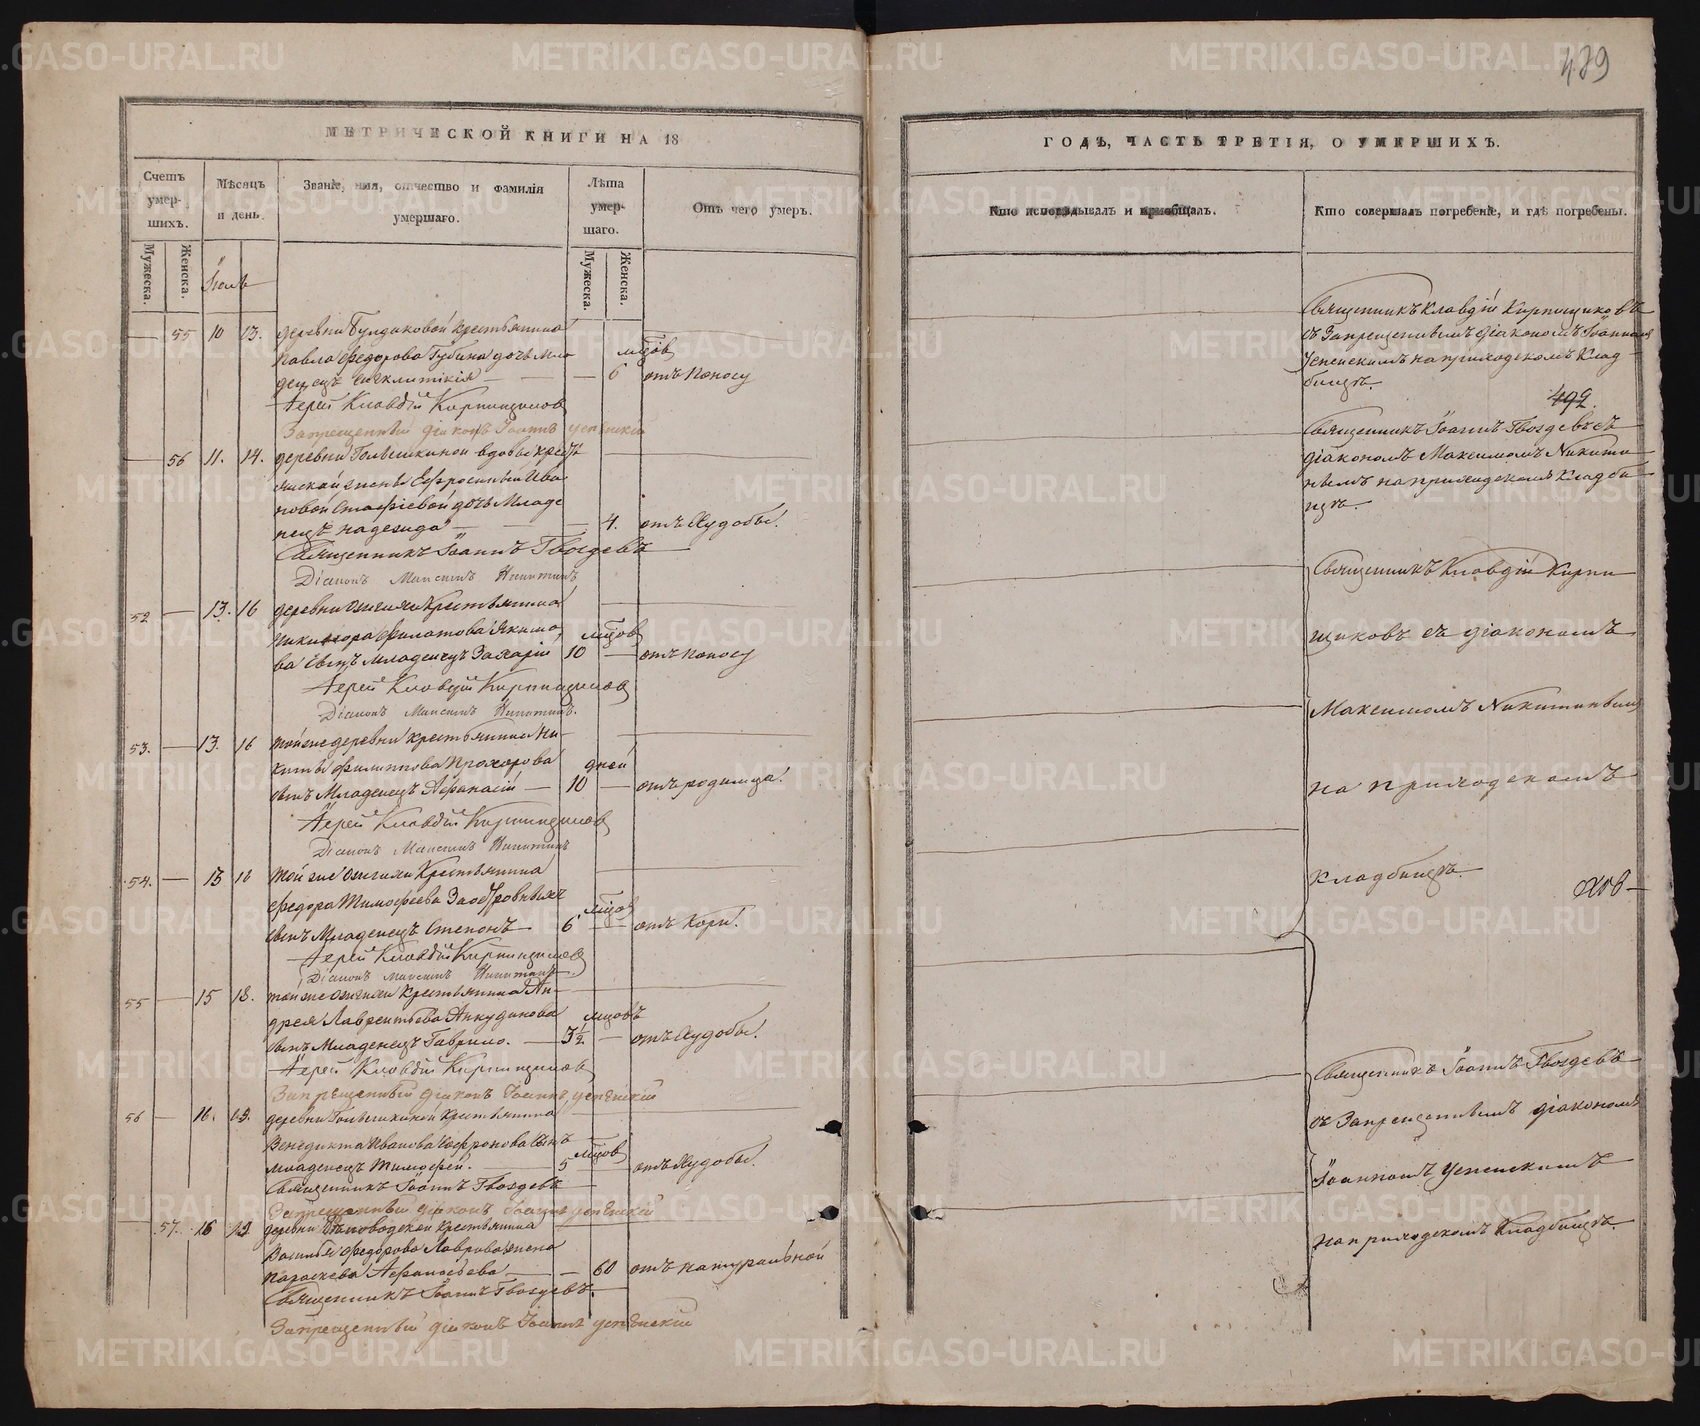 489
МЕТРИЧЕСКОЙ КНИГИ НА 18
Счетъ умершихъ.
Мужеска.
Женска.
Мѣсяцъ и день
Званіе, имя, отчество и фамилія умершаго.
Лѣта умершаго.
Мужеска.
Женска.
Отъ чего умеръ.
Іюль
55 10 13. деревни Булдаковой крестьянина
Павла Федорова Губина дочь мла-
денецъ Синклитикія 6 мцовъ отъ поносу
Іерей Клавдій Кирпищиковъ
Запрещенный діаконъ Іоаннъ Успенскій
56 11. 14. деревни Голышкиной вдовы крестьянской жены Евфросиніи Ива-
новой дочь Младе-
нецъ Надежда 4. отъ Худобы.
Священникъ Іоаннъ Гвоздевъ
Діаконъ Максимъ Никитинъ
52 13. 16 деревни Ожгихи Крестьянина
Никифора Филатова Якимо-
ва сынъ младенецъ Захарій 10 мцовъ отъ поносу
Іерей Клавдій Кирпищиковъ
Діаконъ Максимъ Никитинъ.
53. 13. 16 той же деревни крестьянина Ни-
киты Филиппова Прохорова
сынъ Младенецъ Афанасій 10 дней отъ родимца.
Іерей Клавдій Кирпищиковъ
Діаконъ Максимъ Никитинъ
54. 13 16 той же Ожгихи Крестьянина
Федора Тимофеева
сынъ Младенецъ Степанъ 6 мцовъ отъ Кори.
Іерей Клавдій Кирпищиковъ
Діаконъ Максимъ Никитинъ
55 15 18. той же Ожгихи крестьянина Ан-
дрея Лаврентьева Анкудинова
сынъ Младенецъ Гаврило. 3½ мцовъ отъ Худобы.
Іерей Клавдій Кирпищиковъ
Запрещенный діаконъ Іоаннъ Успенскій
56 16. 19. деревни Голышкиной Крестьянина
Венедикта Иванова Софронова сынъ
младенецъ Тимофей. 5 мцовъ отъ Худобы.
Священникъ Іоаннъ Гвоздевъ
Запрещенный діаконъ Іоаннъ Успенскій
57. 16 19 деревни крестьянина
Василья Федорова Лаврова жена
Параскева Афанасьева 60 отъ натуральной
Священникъ Іоаннъ Гвоздевъ.
Запрещенный діаконъ Іоаннъ Успенскій
ГОДЪ, ЧАСТЬ ТРЕТІЯ, О УМЕРШИХЪ.
Кто исповѣдывалъ и пріобщалъ.
Кто совершалъ погребеніе, и гдѣ погребены.
Священникъ Клавдій Кирпищиковъ
съ Запрещеннымъ діакономъ Іоанномъ
Успенскимъ на приходскомъ Клад-
бищѣ.
492
Священникъ Іоаннъ Гвоздевъ съ
діакономъ Максимомъ Никити-
нымъ на приходскомъ Кладби-
щѣ.
Священникъ Клавдій Кирпи-
щиковъ съ діакономъ
Максимомъ Никитинымъ
на приходскомъ
Кладбищѣ.
Священникъ Іоаннъ Гвоздевъ
съ Запрещеннымъ діакономъ
Іоанномъ Успенскимъ
на приходскомъ Кладбищѣ.
METRIKI.GASO-URAL.RU